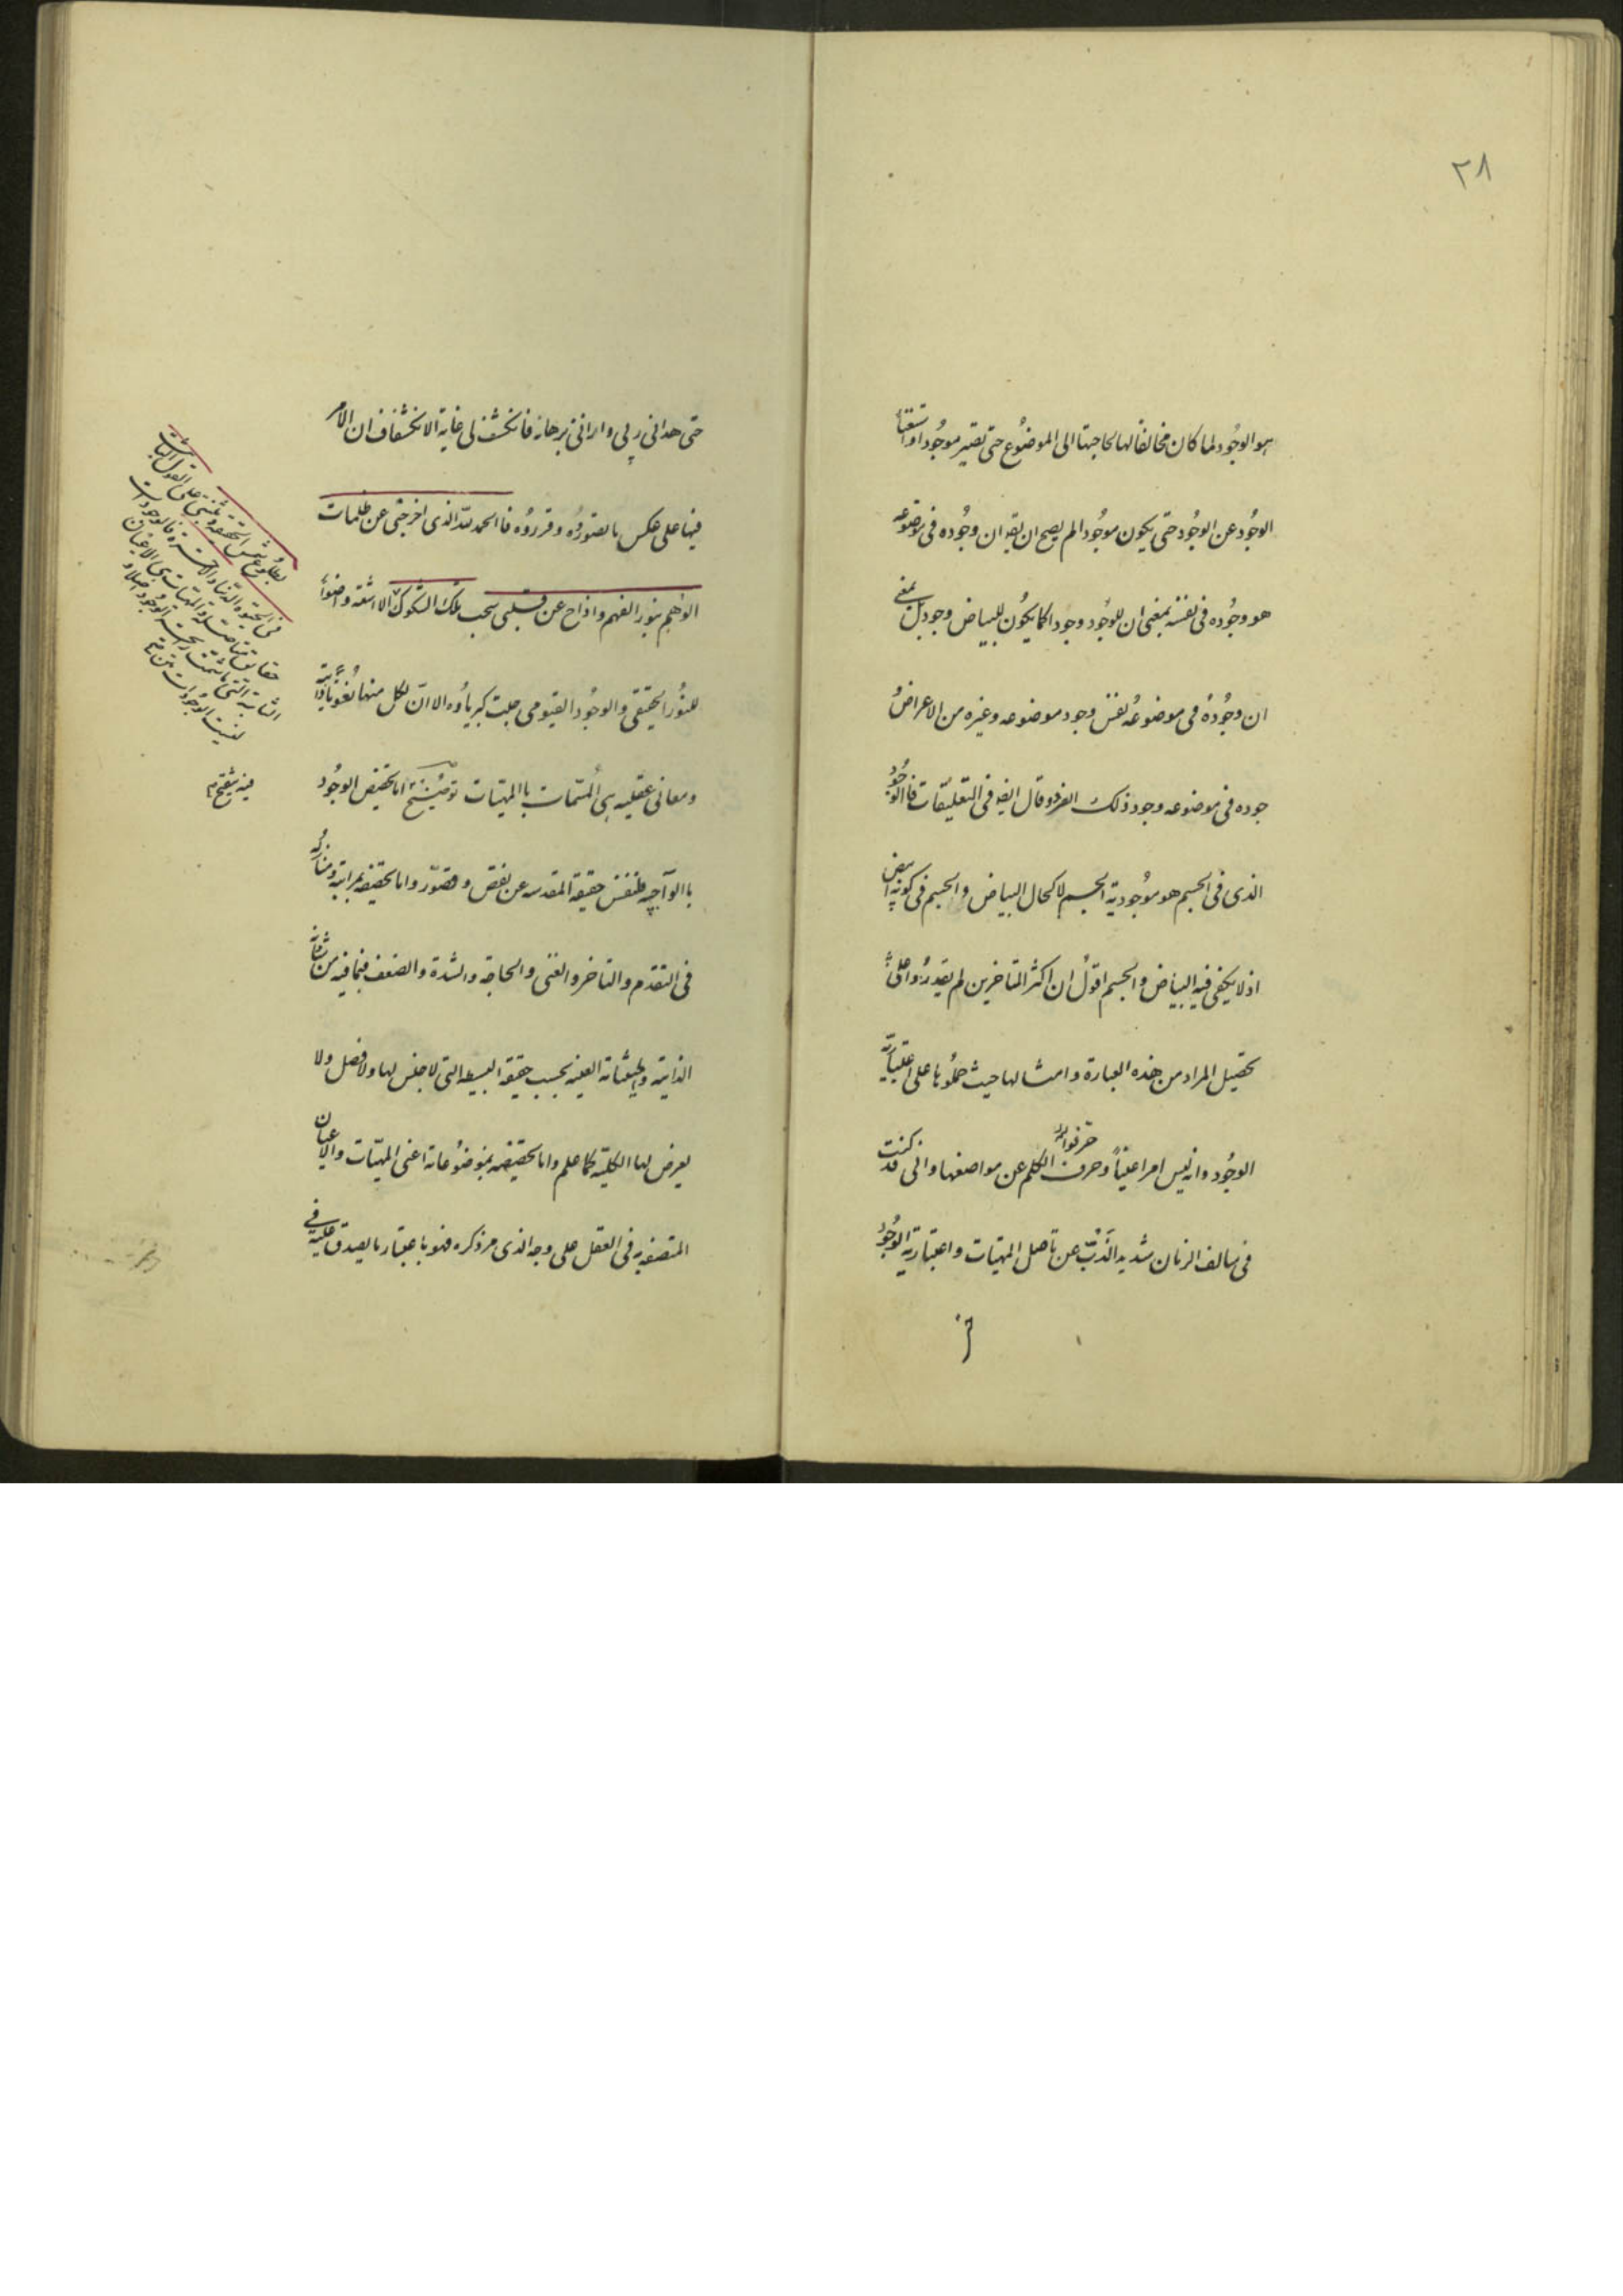 ٢٨
هو الوجود لما كان مخالفا لها لحاجتها الى الموضوع حتى تصير موجودا واستغناء
الوجود عن الوجود حتى يكون موجودا لم يصح ان يقه ان وجوده فى موضوعه
هو وجوده فى نفسه بمعنى ان للوجود وجودا كما يكون للبياض وجود بل بمعنى
ان وجوده فى موضوعه نفس وجود موضوعه وغيره من الاعراض
جوده فى موضوعه وجود ذلك الغير وقال ايضا فى التعليقات فالوجود
الذى فى الجسم هو موجودية الجسم لا كحال البياض والجسم فى كونه ابيض
اذ لا يكفى فيه البياض والجسم اقول ان اكثر المتاخرين لم يقدروا على
تحصيل المراد من هذه العبارة وامثالها حيث حملوها على اعتبارية
الوجود وانه ليس امرا عينيا وحرف الكلم عن مواضعها وانى قد كنت
حرفوا
فى سالف الزمان شديد الذب عن تاصل المهيات واعتبارية الوجود
حتى هدانى ربى وارانى برهانه فانكشف لى غاية الانكشاف ان الامر
فيها على عكس ما تصوروه وقرروه فاالحمد لله الذى اخرجنى عن ظلمات
الوهم بنور الفهم وازاح عن قلبى سحب تلك الشكوك الا اشعة واضواء
للنور الحقيقى والوجود القيومى جلت كبرياؤه الا ان لكل منها نعوتا ذاتية
ومعانى عقليه هى المسمات باالمهيات توضيح اما تخصيص الوجود
باالواجبيه فلنفس حقيقة المقدسه عن نقص وقصور واما تخصيصه بمراتبه ومنازله
فى التقدم والتاخر والغنى والحاجة والشدة والضعف فبما فيه من شئونه
الذاتية وحيثياته العينيه بحسب حقيقة البسيطه التى لا جنس لها ولا فصل ولا
يعرض لها الكليه كما علم واما تخصيصه بموضوعاته اعنى المهيات والاعيان
المتصفه به فى العقل على وجه الذى مر ذكره فهو باعتبار ما يصدق عليه فى
بطلوع شمس الحقيقة وثبتنى على القول الثابت
فى الحيوة الدنيا والاخرة فالوجودات
حقايق متاصلة والمهيات هى الاعيان
الثابتة التى ما شمت رايحة الوجود اصلا و
ليست الوجودات